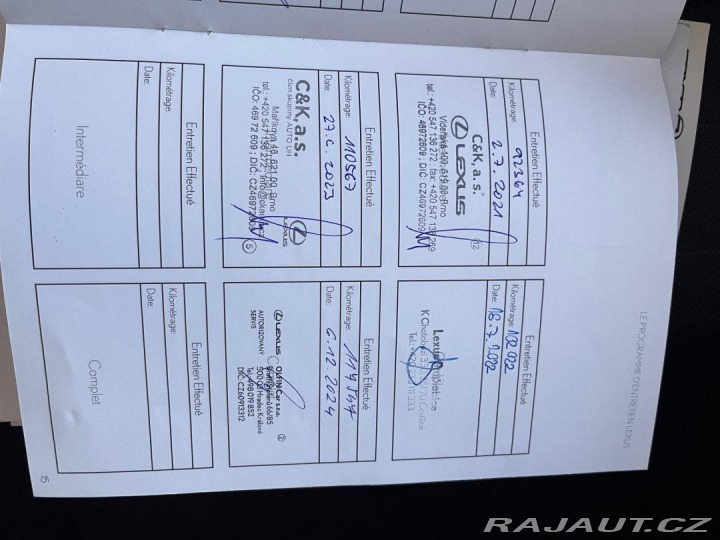 LE PROGRAMME D'ENTRETIEN LEXUS
Entretien Effectué
Kilométrage: 92364
Date: 2.7.2021
C&K, a.s.
LEXUS
Vídeňská 100, 619 00 Brno
tel.: +420 547 136 272, fax: +420 547 136 269
IČO: 46972609; DIČ: CZ46972609
Entretien Effectué
Kilométrage: 102 022
Date: 18.7.2022
Lexus
K Chotobuzi 3,
Entretien Effectué
Kilométrage: 110567
Date: 2023
C&K, a.s.
člen skupiny AUTO UH
Maříkova 48, 621 00 Brno
tel.: +420 547 136 272,
IČO: 469 72 609 ; DIČ: CZ46972609
LEXUS
5
Entretien Effectué
Kilométrage:
Date: 6.12.2024
LEXUS
AUTORIZOVANÝ
SERVIS
2
Car s.r.o.
500 03 Hradec Králové
Tel:498 019 852
DIČ: CZ60913312
Entretien Effectué
Kilométrage:
Date:
Intermédiare
Entretien Effectué
Kilométrage:
Date:
Complet
15
RAJAUT.CZ